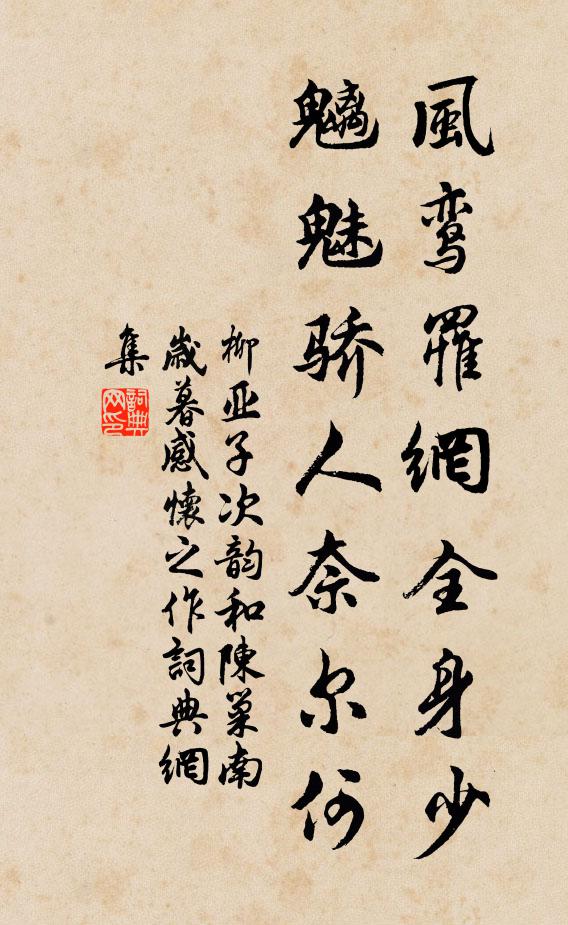 風鸾羅網全身少
魑魅骄人奈尔何
柳亚子次韵和陳巢南
歲暮感懷之作詞典網
集
詞典
网印